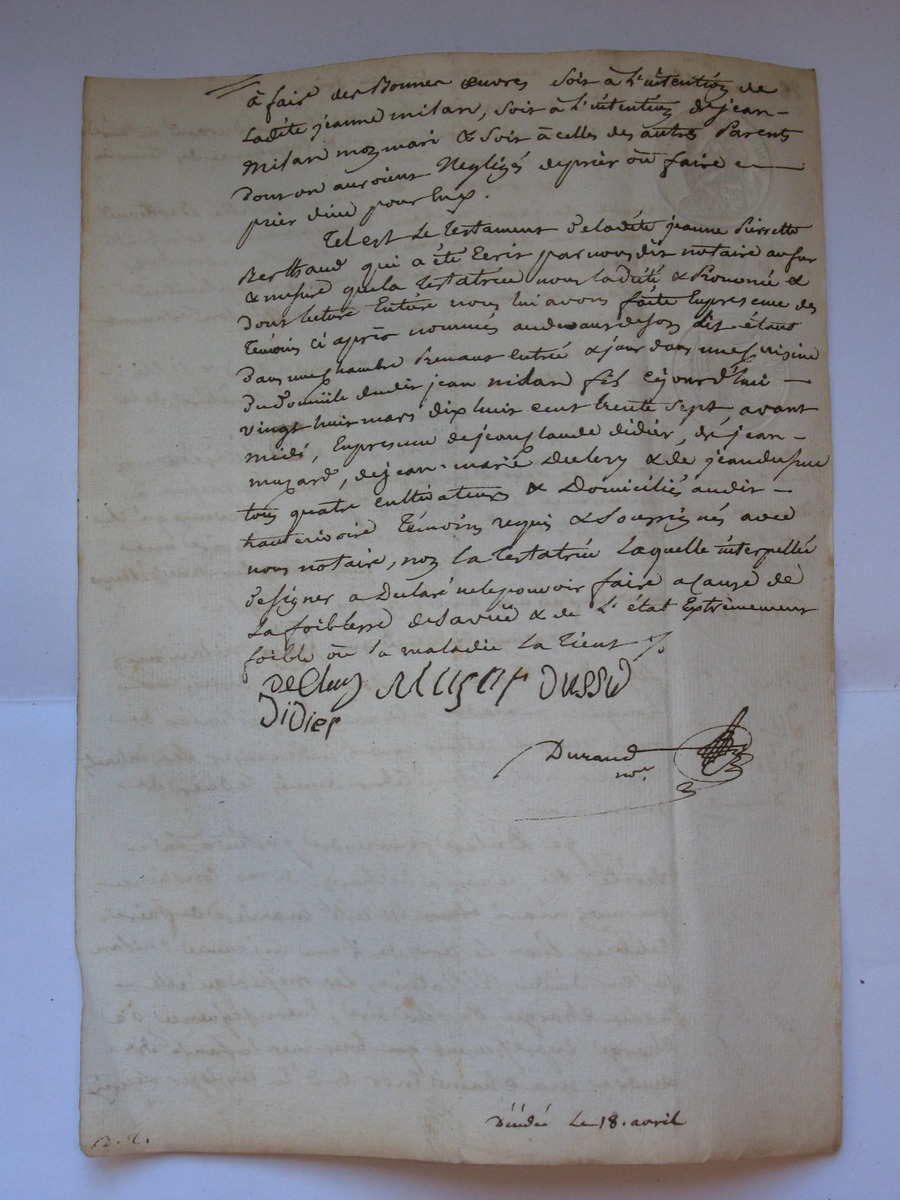 à faire des Bonnes œuvres soit à L'intention de
Ladite jeanne milan, soit à l'intention de jean
milan mon mari & soit à celles des autres Parents
dont on auroient Negligés de prier où faire
prier dieu pour Eux.
Tel est Le Testament de la dite jeanne Pierrette
Berthaud qui a été Ecrit par nous dit notaire au fur
& mesure que la Testatrice nous la dicté & Prononcé &
dont lecture Entière nous lui avons faite En presence des
Temoins ci après nommés
dans une chambre Prenant entrée & jour dans une Cuisine
du Domicile du dit jean milan fils Cejourd'hui
vingt huit mars dix huit cent trente sept, avant
midi, En presence de jean Claude didier, de jean
muzard, de jean-marie Declery & de jean
tous quatre cultivateurs & Domiciliés au dit
hauterivoire Témoins requis & Soussignés avec
nous notaire, non la Testatrice Laquelle interpellée
de signer a Declaré ne le pouvoir faire a Cause de
La foiblesse de sa vuë & de L'état Extrêmement
foible où la maladie La Tient
Muzar
Didier
Durand
nore
Le 18. avril